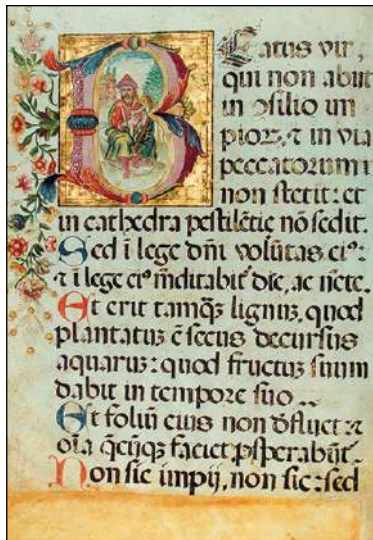 Beatus vir,
qui non abiit
in ɔsilio im
pioꝝ, ⁊ in via
peccatorum
non stetit: et
in cathedra pestilẽtie nõ sedit.
Sed ĩ lege dñi volũtas eiꝰ:
⁊ ĩ lege eiꝰ m̃ditabit̃ die, ac nc̃te.
Et erit tamꝙ̃ lignũ, quod
plantatũ ẽ secus decursus
aquarũ: quod fructũ suum
dabit in tempore suo..
Et foliũ eius non d̃fluet: ⁊
oĩa q̃cũqꝫ faciet ꝓsperabũt̃.
Non sic impij, non sic: sed